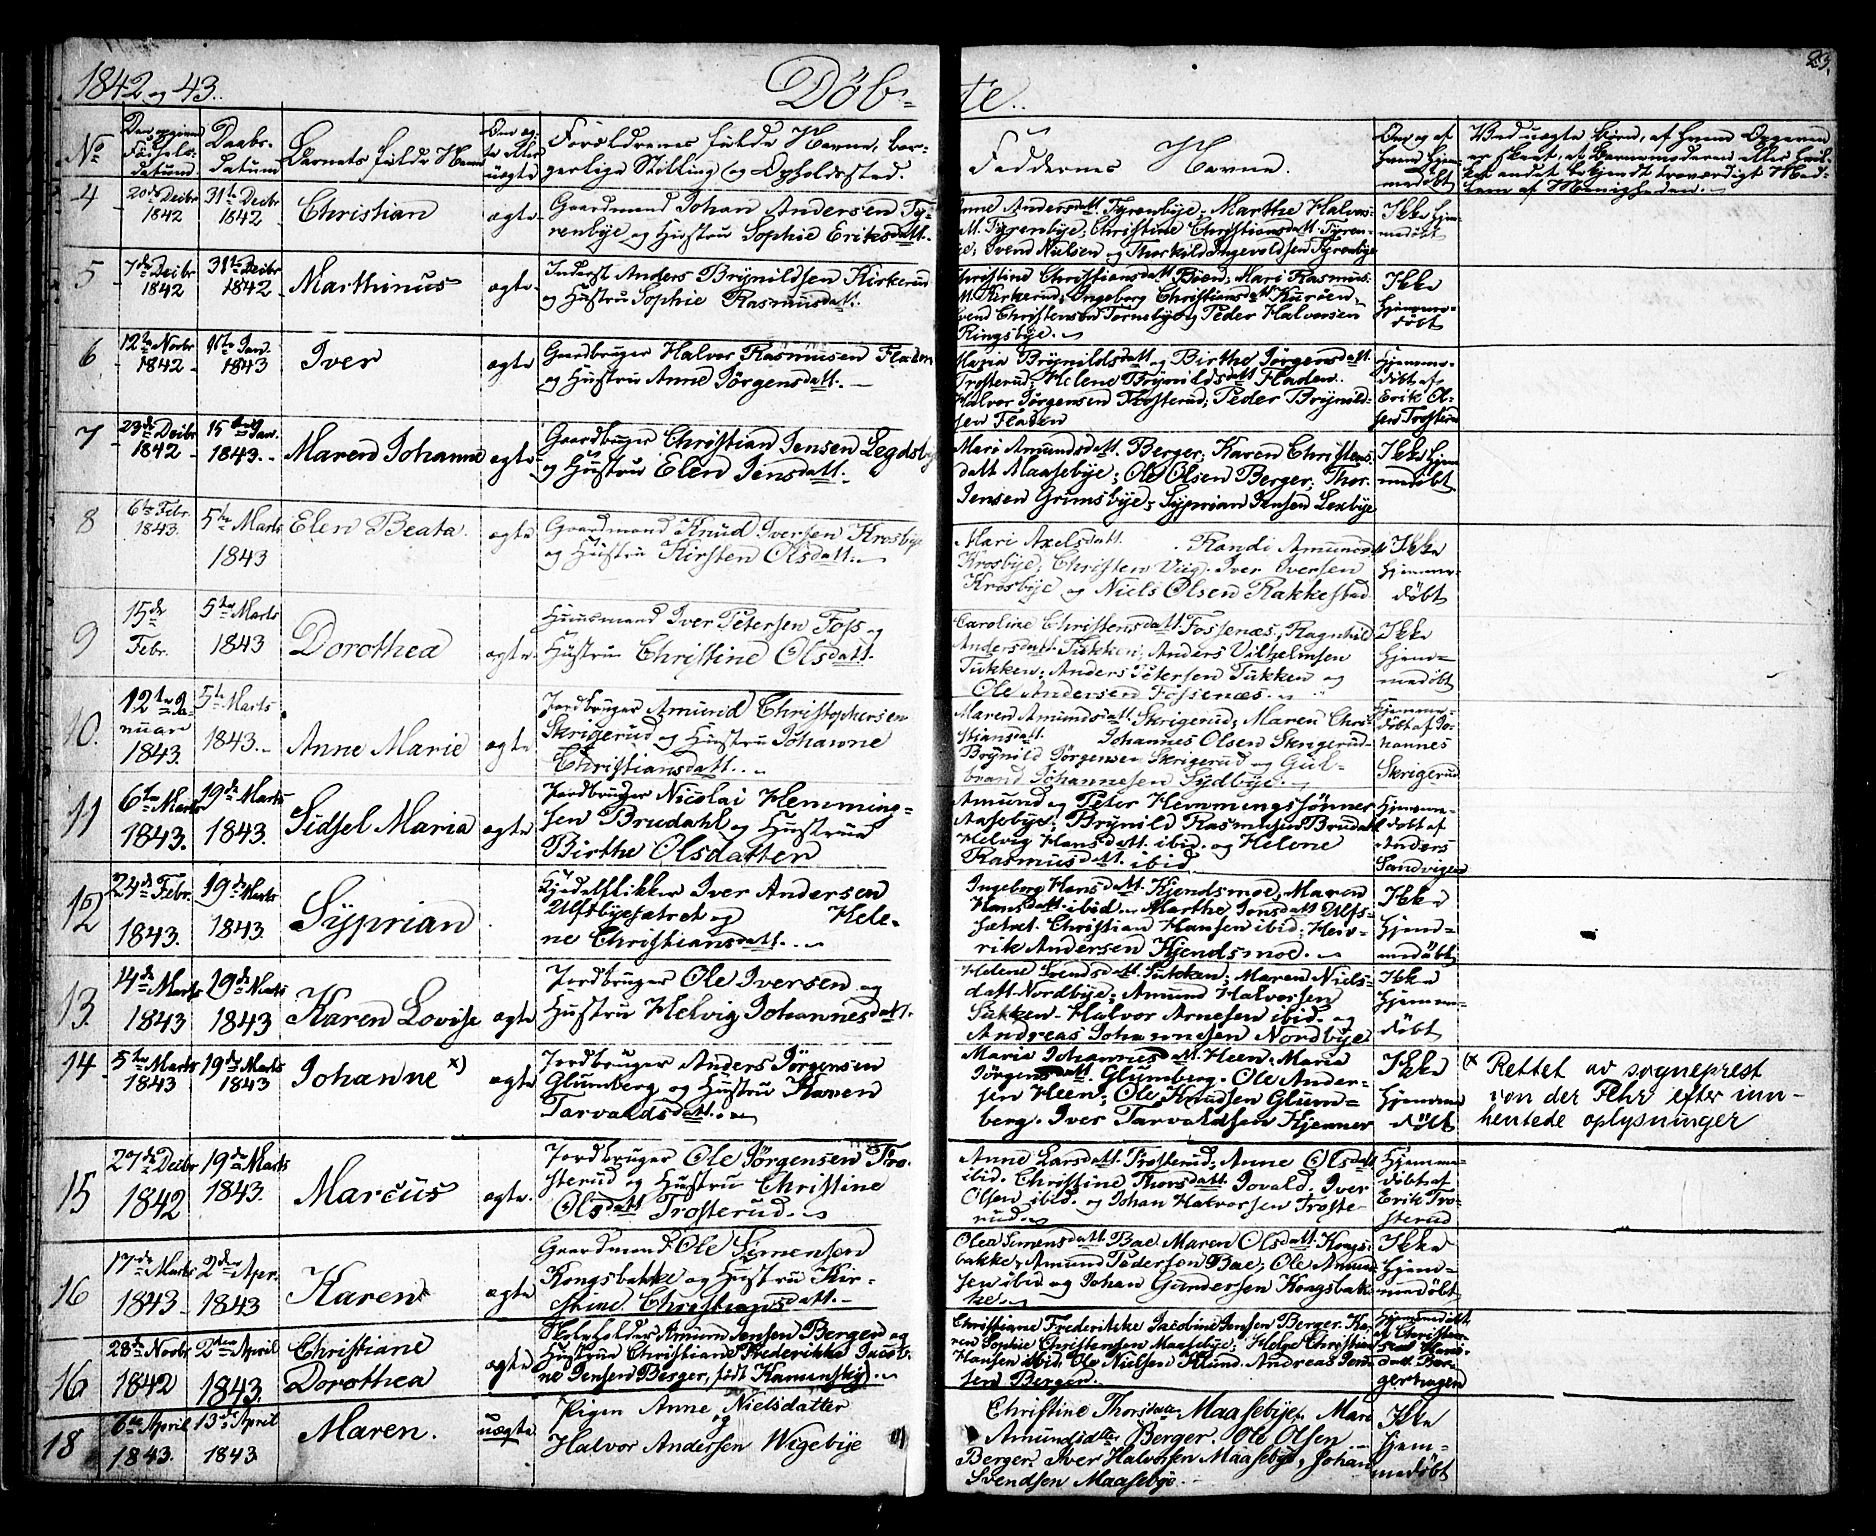 1842 og 43.
Döb-
te.
23.
No
Den opgivne Födsels-datum
Daabs-datum
Barnets fulde Navn
Om ægte eller uægte
Forældrenes fulde Navne, borgerlige Stilling og Opholdssted.
Faddernes Navne.
Om og af hvem hjemmedöbt
Ved uægte Börn, af hvem Opgaven er skeet, af Barnemoderen eller hvilket andet bekjendt troværdigt Medlem af Menigheden.
4
20de Decbr 1842
31te Decbr 1842
Christian
ægte
Gaardmand Johan Andersen Ty-
renbye og Hustru Sophie Eriksdatt.
Anne Andersdatt. Tyrenbye, Marthe Halvors-
datt. Tyrenbye, Christine Christiansdatt. Tyren-
bye, Svend Nielsen og Thorkild Ingevoldsen Tyrenbye
Ikke hjem-
medöbt
5
7de Decbr 1842
31te Decbr 1842
Marthinus
ægte
Inderst Anders Brynildsen Kirkerud
og Hustru Sophie Rasmusdatt.
Christine Christiansdatt. Böen, Mari Rasmus-
datt. Kirkerud, Ingeborg Christiansdatt. Kuröen
Svend Christensen Tornsbye og Peder Halvorsen
Ringsbye.
Ikke
hjemme-
döbt
6
12te Novbr 1842
1ste Jan. 1843
Iver
ægte
Gaardbruger Halvor Rasmusen Fladen
og Hustru Anne Jörgensdatt.
Maria Brynildsdatt. og Birthe Jörgensdatt.
Trosterud, Helene Brynildsdatt. Fladen.
Halvor Jörgensen Trosterud, Peder Brynild-
sen Fladen
Hjemme-
döbt af
Erik Ol-
sen Trosterud
7
23de Decbr 1842
15 Jan. 1843.
Maren Johanne
ægte
Gaardbruger Christian Jensen Legdsbye
og Hustru Elen Jensdatt.
Mari Amundsdatt. Berger, Karen Christens-
datt Maasebye, Ole Olsen Berger, Thor
Jensen Grimsbye, Syprian Jensen Lexbye
Ikke hjem
medöbt
8
6te Febr. 1843.
5te Marts 1843
Elen Beata
ægte
Gaardmand Knud Iversen Krosbye
og Hustru Kirsten Olsdatt.
Mari Axelsdatt. Randi Amundsd.
Krosbye, Christen Viig. Iver Iversen
Krosbye og Niels Olsen Rakkestad
Ikke
hjemme-
döbt
9
15de Febr.
5te Marts 1843
Dorothea
ægte
Huusmand Iver Petersen Foss og
Hustru Christine Olsdatt.
Caroline Christensdatt. Fossenæs, Ragnhild
Andersdatt. Tukken, Anders Vilhelmsen
Tukken, Anders Petersen Tukken og
Ole Andersen Fossenæs.
Ikke
hjem-
medöbt
10.
12te Ja-
nuar
1843.
5te Marts 1843.
Anne Marie
ægte
Jordbruger Amund Christophersen
Skrigerud og Hustru Johanne
Christiansdatt.
Maren Amundsdatt. Skrigerud, Maren Chri-
stiansdatt. Johannes Olsen Skrigerud
Brynild Jörgensen Skrigerud og Gul-
brand Johannesen Sydbye.
Hjemme-
döbt af Jo-
hannes
Skrigerud
11
6te Marts 1843.
19de Marts 1843.
Sidsel Maria
ægte
Jordbruger Nicolai Hemming-
sen Brudahl og Hustrue
Birthe Olsdatter
Amund og Peter Hemmingssönner
Aasebye, Brynild Rasmusen Brudahl
Helvig Hansdatt. ibid. og Helene
Rasmusdatt. ibid
Hjemme-
döbt af
Anders
Sandvigen
12
24de Febr. 1843.
19de Marts 1843.
Syprian
Gjedelflikker Iver Andersen
Ulfsbyesætret og Hele-
ne Christiansdatt.
Ingeborg Hansdatt. Kjendsmoe, Maren
Hansdatt. ibid. Marthe Jonsdatt. Ulfs-
sætret. Christian Hansen ibid, Hen-
rik Andersen Kjendsmoe.
Ikke
hjem-
medöbt
13.
4de Marts 1843
19de Marts 1843
Karen Lovise
ægte
Jordbruger Ole Iversen og
Hustru Helvig Johannesdatt.
Helene Svendsdatt. Sukken, Maren Niels-
datt. Nordbye, Amund Halvorsen
Sukken. Halvor Arnesen ibid. og
Andreas Johannesen Nordbye
Ikke
hjemme-
döbt
14
5te Marts 1843
19de Marts 1843
Johanne x)
ægte
Jordbruger Anders Jörgensen
Glumberg og Hustru Karen
Tarvaldsdatt.
Maria Johannesdatt. Heen. Maria
Jörgensdatt. Glumberg. Ole Ander-
sen Heen, Ole Knudsen Glum-
berg. Iver Tarvaldsen Hjenner
Ikke
hjemme
döbt
(x Rettet av sogneprest
von der Fehr efter inn-
hentede oplysninger
15
27de Decbr 1842
19de Marts 1843.
Marcus
ægte.
Jordbruger Ole Jörgensen Tro-
sterud og Hustru Christine
Olsdatt Trosterud.
Anne Larsdatt. Trosterud, Anne Olsdatt
ibid. Christine Thorsdatt. Jovald. Iver
Olsen ibid. og Johan Halvorsen Troste-
rud.
Hjemme-
döbt af
Erik Tro-
sterud
16
17de Marts 1843
2den Apr. 1843
Karen
ægte
Gaardmand Ole Simensen
Kongsbakke og Hustru Kir-
stine Christiansdatt.
Olea Simensdatt. Bae Maren Olsdatt. Kongs-
bakke, Amund Pedersen Bae, Ole Amund
sen ibid og Johan Gundersen Kongsbak-
ke.
Ikke
hjem-
medöbt
16
28de Novbr 1842
2den April 1843.
Christiane
Dorothea
ægte
Skoleholder Amund Jensen Berger og
Hustrue Christiane Frederikke Jacobi-
ne Jensen Berger, födt Kamensky).
Christiane Frederikke Jacobine Jensen Berger. Ka-
ren Sophie Christensen Maasebye, Helge Christian
Hansen ibid. Ole Nielsen Klund. Andreas Jen-
sen Berger.
Hjemmedöbt
af Christine
Hans-
datt. Ber-
gerhagen
18
6te April 1843.
13de April 1843
Maren.
uægte
Pigen Anne Nielsdatter
og
Halvor Andersen Wigebye
Christine Thorsdatter Maasebye, Mari
Amundsdtter Berger. Ole Olsen
Berger, Iver Halvorsen Maasebye, Johan
Svendsen Maasebye.
Ikke
hjem-
medöbt